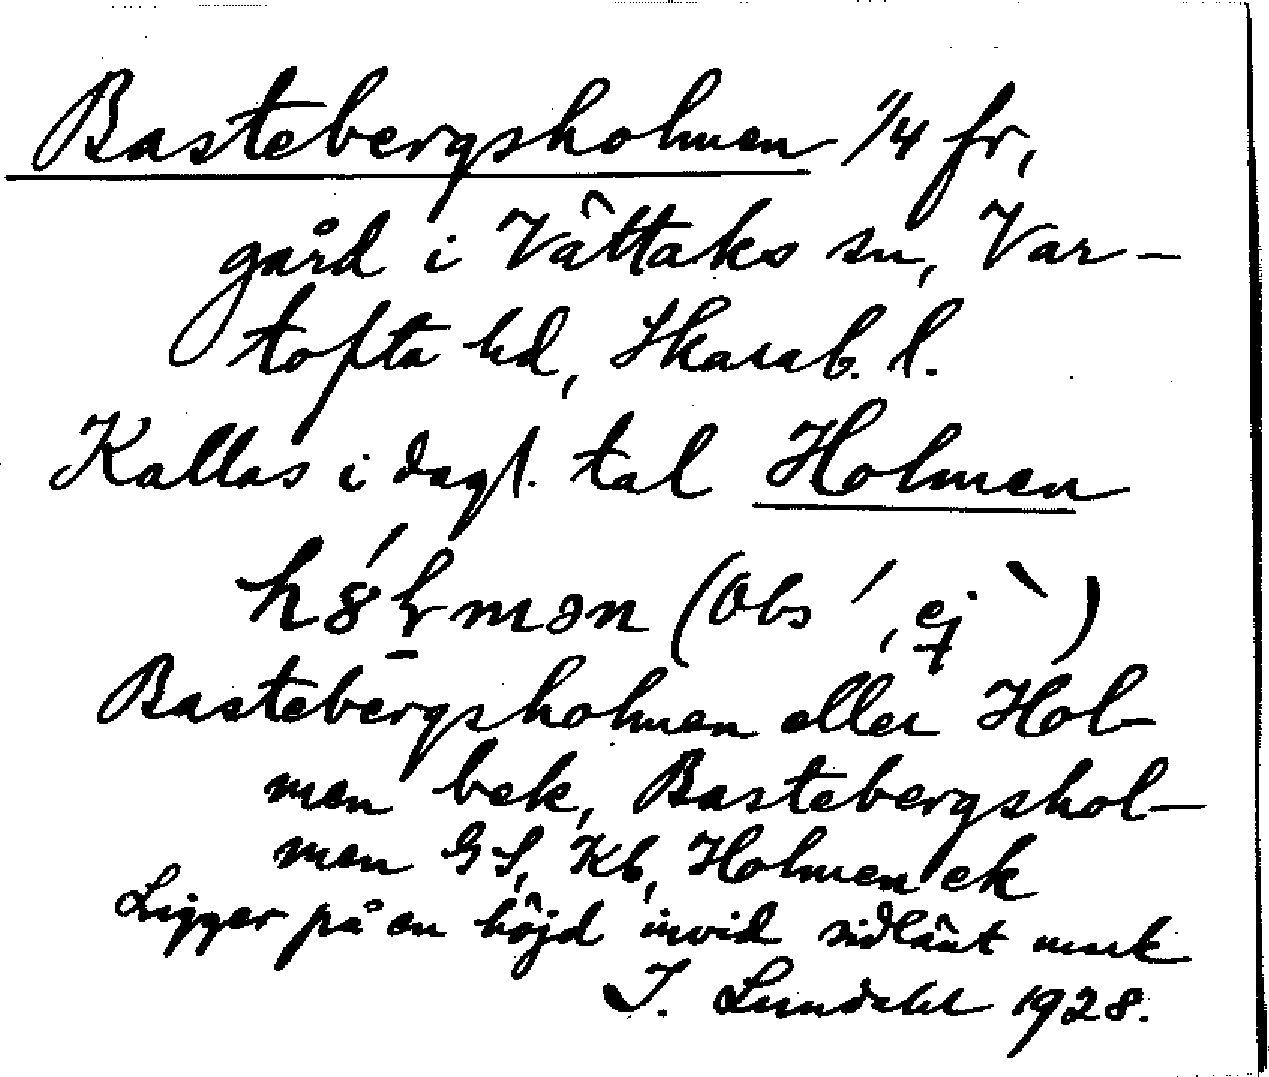 Bastebergsholmen 1/4 fr,
gård i Vättaks sn, Var-
tofta hd, Skarab. l.
Kallas i dagl. tal Holmen
(Obs ´, ej `)
Bastebergsholmen eller Hol-
men bek, Bastebergshol-
men GS, Kb, Holmen ek
Ligger på en höjd invid sidlänt mark
I. Lundahl 1928.